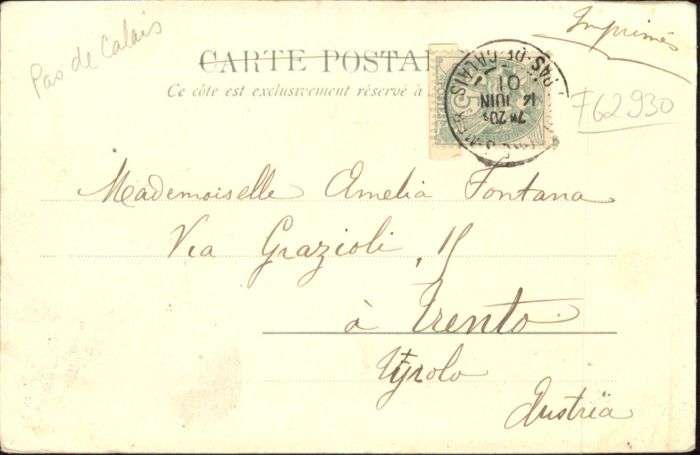 Pas de Calais
Imprimés
CARTE POSTAL
Ce côté est exclusivement réservé à
5
PAS-DE-CALAIS
7ᴱ 20ˢ
14 JUIN
01
F62930
Mademoiselle Amelia Fontana
Via Grazioli, 15
à Trento
Tyrolo
Austria